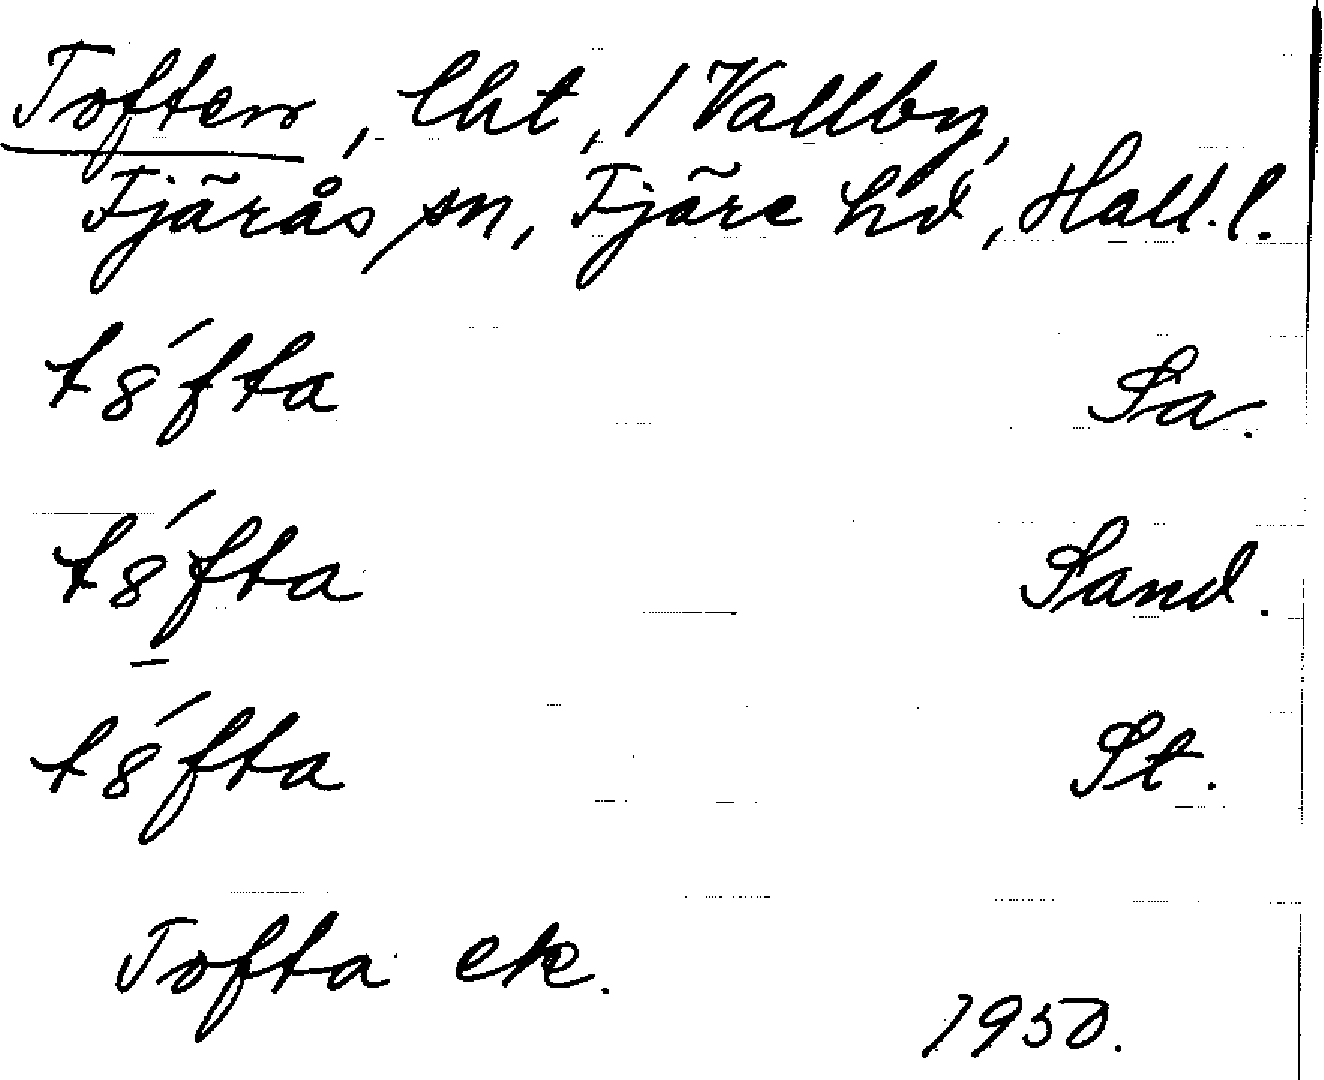 Toften, lht, 1 Vallby,
Fjärås sn, Fjäre hd, Hall. l.
t8́fta Sa.
t8́fta Sand.
t8́fta St.
Tofta ek.
1950.